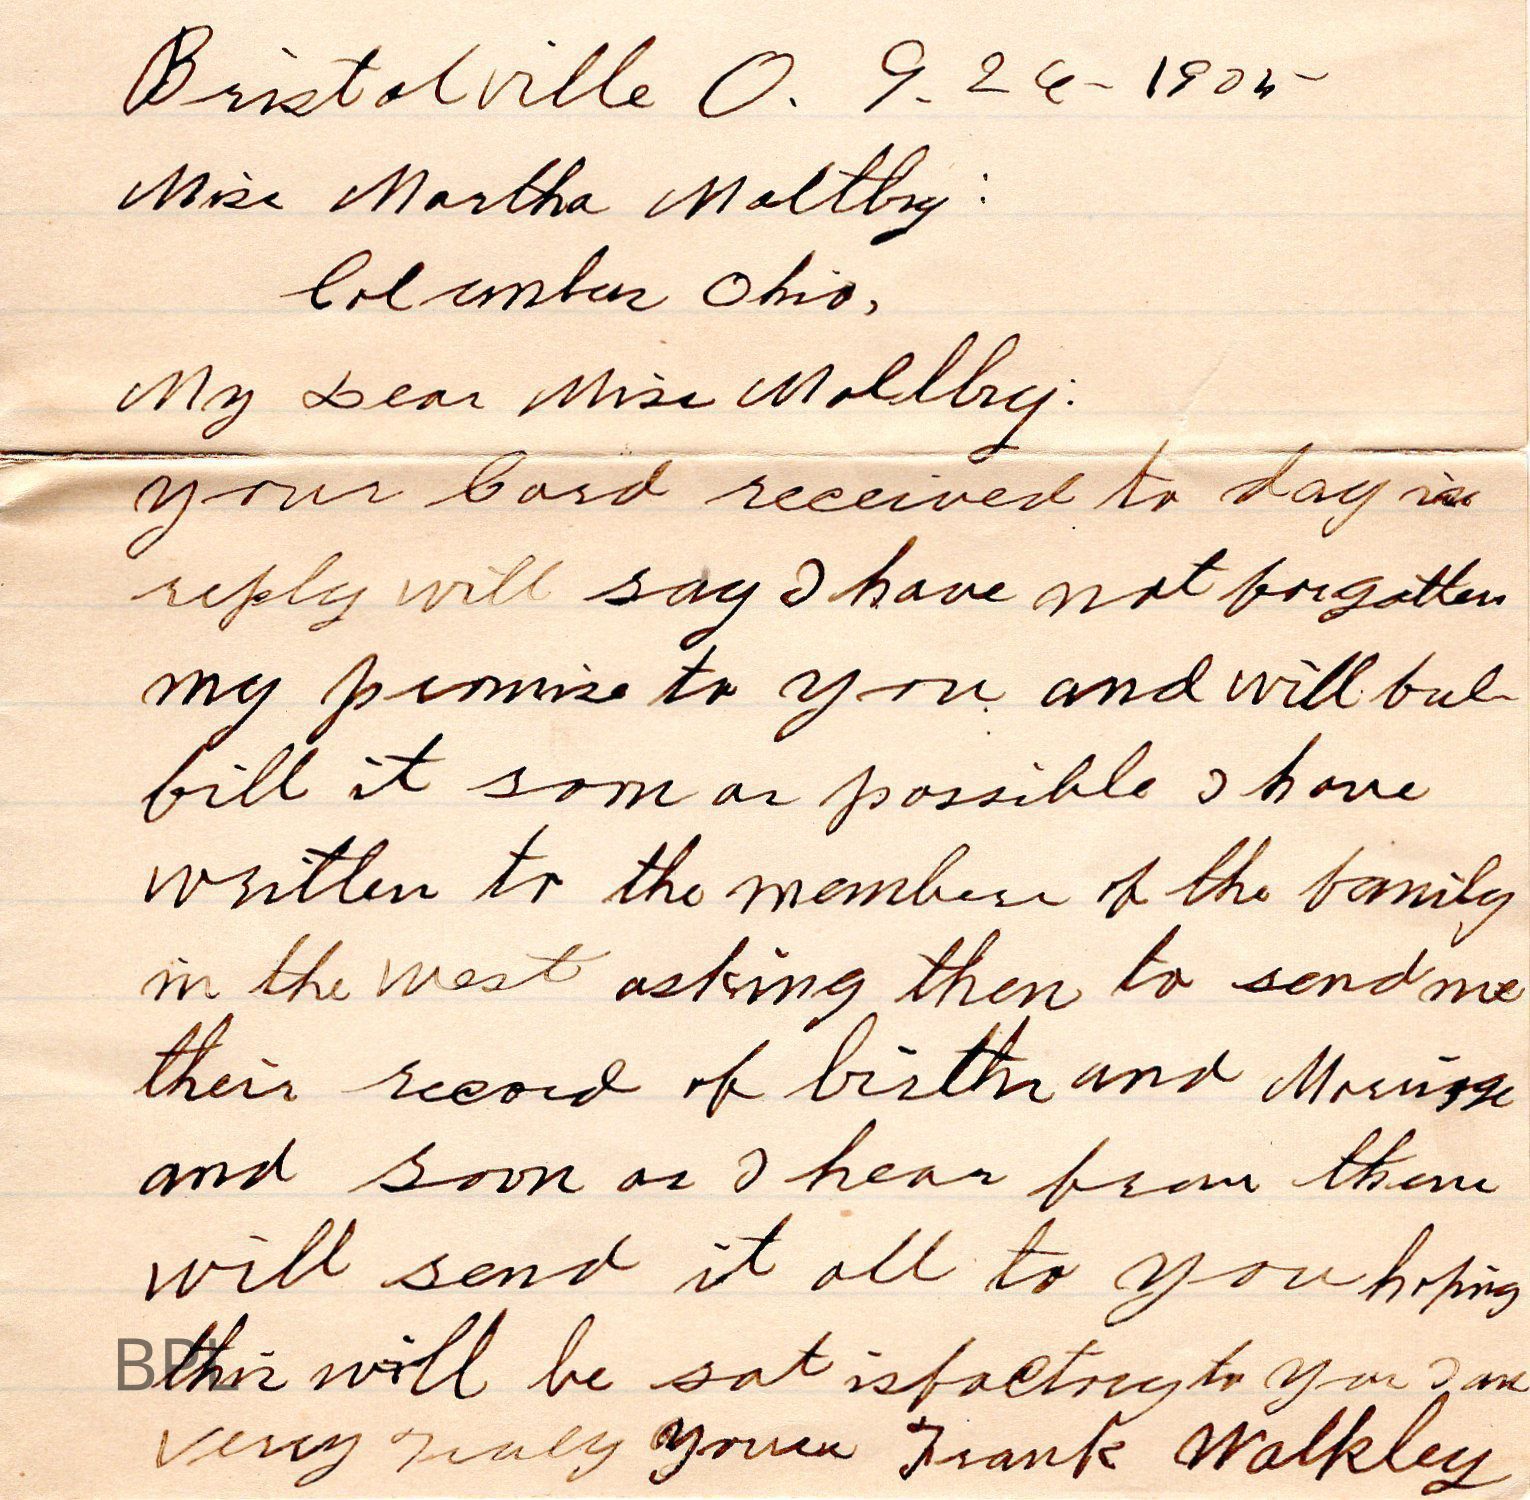 Bristolville O. 9-26-1905-
Miss Martha Maltby:
Columbus Ohio,
My Dear Miss Maltby:
your Card received to day in
reply will say I have not forgotten
my promise to you and will ful-
fill it soon as possible I have
written to the members of the family
in the west asking them to send me
their record of birth and Marriage
and soon as I hear from them
will send it all to you hoping
this will be satisfactory to you I am
very truly yours Frank Walkley
BPL